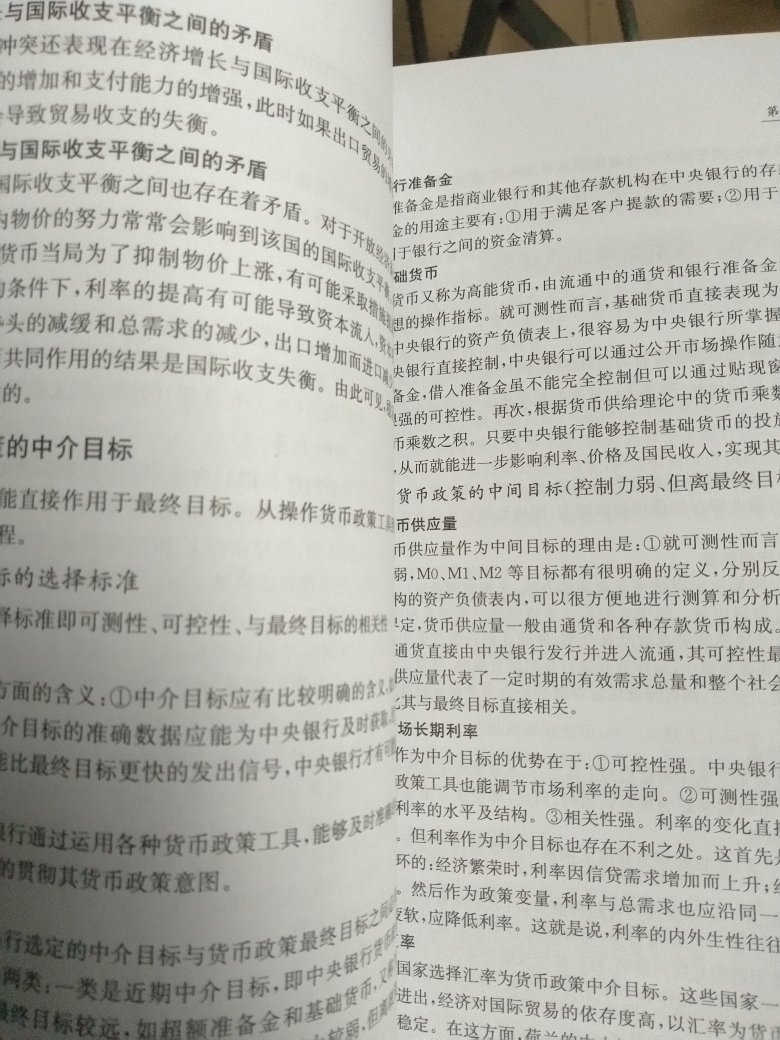 与国际收支平衡之间的矛盾
冲突还表现在经济增长与国际收支平衡之间的
的增加和支付能力的增强，此时如果出口贸易的
导致贸易收支的失衡。
与国际收支平衡之间的矛盾
国际收支平衡之间也存在着矛盾。对于开放经济
内物价的努力常常会影响到该国的国际收支平衡
货币当局为了抑制物价上涨，有可能采取措施
的条件下，利率的提高有可能导致资本流入，资本
头的减缓和总需求的减少，出口增加而进口减少
共同作用的结果是国际收支失衡。由此可见，
的。
的中介目标
能直接作用于最终目标。从操作货币政策工具
程。
标的选择标准
择标准即可测性、可控性、与最终目标的相关性
方面的含义：①中介目标应有比较明确的含义，
介目标的准确数据应能为中央银行及时获取，
能比最终目标更快的发出信号，中央银行才有可
银行通过运用各种货币政策工具，能够及时准确
的贯彻其货币政策意图。
行选定的中介目标与货币政策最终目标之间
两类：一类是近期中介目标，即中央银行货币
最终目标较远，如超额准备金和基础货币，又
较弱，但离
第
行准备金
准备金是指商业银行和其他存款机构在中央银行的存
金的用途主要有：①用于满足客户提款的需要；②用于
用于银行之间的资金清算。
础货币
货币又称为高能货币，由流通中的通货和银行准备金
想的操作指标。就可测性而言，基础货币直接表现为
中央银行的资产负债表上，很容易为中央银行所掌握
央银行直接控制，中央银行可以通过公开市场操作随
备金，借人准备金虽不能完全控制但可以通过贴现窗
强的可控性。再次，根据货币供给理论中的货币乘数
币乘数之积。只要中央银行能够控制基础货币的投放
，从而就能进一步影响利率、价格及国民收入，实现其
货币政策的中间目标（控制力弱、但离最终目标
币供应量
币供应量作为中间目标的理由是：①就可测性而言
弱，M0、M1、M2 等目标都有很明确的定义，分别反
构的资产负债表内，可以很方便地进行测算和分析
定，货币供应量一般由通货和各种存款货币构成。
通货直接由中央银行发行并进入流通，其可控性最
供应量代表了一定时期的有效需求总量和整个社会
其与最终目标直接相关。
场长期利率
作为中介目标的优势在于：①可控性强。中央银行
政策工具也能调节市场利率的走向。②可测性强
利率的水平及结构。③相关性强。利率的变化直接
。但利率作为中介目标也存在不利之处。这首先是
环的：经济繁荣时，利率因信贷需求增加而上升；经
。然后作为政策变量，利率与总需求也应沿同一
疲软，应降低利率。这就是说，利率的内外生性往往
率
国家选择汇率为货币政策中介目标。这些国家一
进出，经济对国际贸易的依存度高，以汇率为货币
稳定。在这方面，荷兰的中